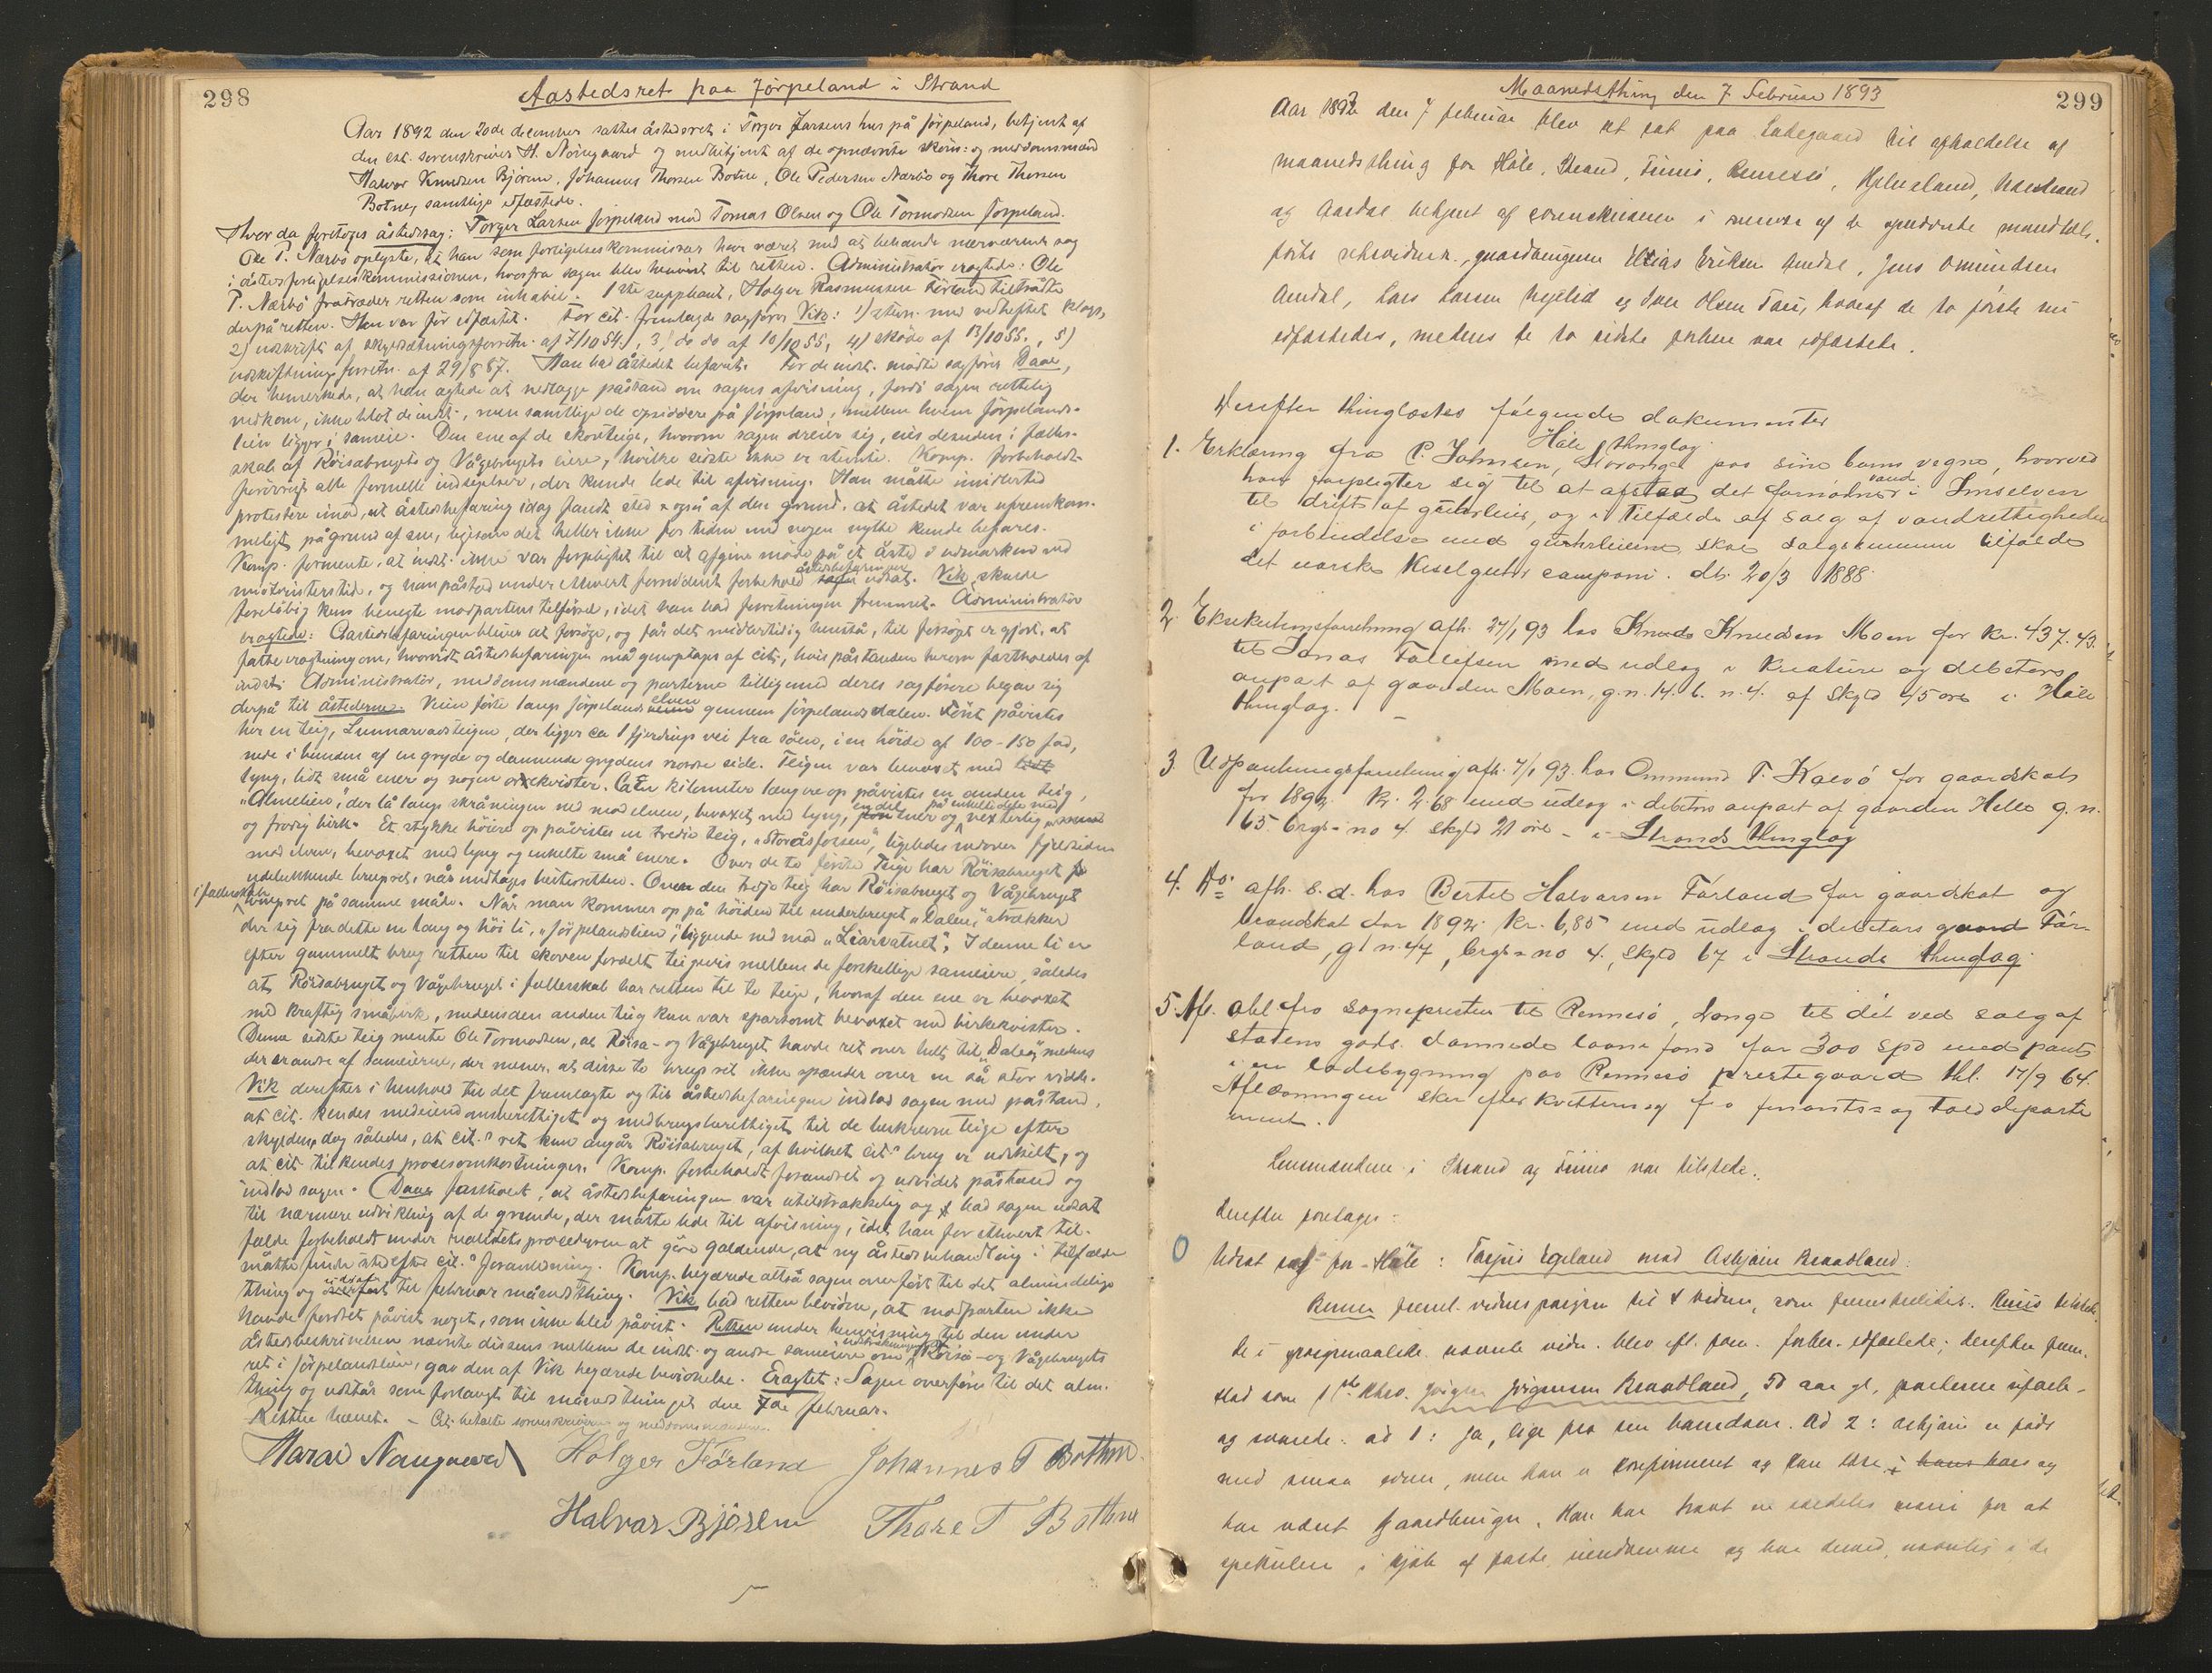 298
Aastedsret paa Jörpeland i Strand
Aar 1892 den 20de december sattes åstedsret i Torger Larsens hus på Jörpeland, betjent af
den est. sorenskriver H. Nörregaard og medbetjent af de opnævnte skjöns- og meddomsmænd
Halvor Knudsen Björen, Johannes Thorsen Botne, Ole Pedersen Nærbö og Thore Thorsen
Botne, samtlige edfæstede.
Hvor da foretoges åstedssag: Torger Larsen Jörpeland mod Tomas Olsen og Ole Tormodsen Jörpeland.
Ole P. Nærbö oplyste, at han som forligelseskommissær har været med at behandle nærværende sag
i åstedsforligelseskommissionen, hvorfra sagen blev henvist til retten. Administrator eragtede: Ole
P. Nærbö fratræder retten som inhabil. 1ste suppleant, Holger Rasmussen Förland tiltrådte
derpå retten. Han var för edfæstet. For cit. fremlagde sagförer Vik: 1) stevn. med vedheftet klage,
2) udskrift af skyldsætningsforretn. af 7/10 54, 3) do do af 10/10 55, 4) sköde af 13/10 55, 5)
udskiftningsforretn. af 29/8 87. Han bad åstedet befaret. For de indst. mödte sagförer Daae,
der bemerkede, at han agtede at nedlægge påstand om sagens afvisning, fordi sagen rettelig
vedkom, ikke blot de indst., men samtlige de opsiddere på Jörpeland, mellem hvem Jörpelands-
lien ligger i sameie. Den ene af de skovteige, hvorom sagen dreier sig, eies desuden i fælles-
skab af Röisabrugets og Vågebrugets eiere, hvilke sidste ikke er stevnte. Komp. forbeholdt
forövrigt alle formelle indsigelser, der kunde lede til afvisning. Han måtte imidlertid
protestere imod, at åstedsbefaring idag fandt sted også af den grund, at åstedet var ufremkom-
meligt på grund af sne, ligesom det heller ikke for tiden med nogen nytte kunde befares.
Komp. formente, at indst. ikke var forpligtet til at afgive möde på et åsted i udmarken ved
midtvinterstid, og han påstod under ethvert fornödent forbehold åstedsbefaringen udsat. Vik skulde
forelöbig kun benegte modpartens tilförsel, idet han bad forretningen fremmet. Administrator
eragtede: Aastedsbefaringen bliver at forsöge, og får det midlertidig henstå, til forsöget er gjort, at
fatte eragtning om, hvorvidt åstedsbefaringen må genoptages af cit., hvis påstanden herom fastholdes af
indst. Administrator, meddomsmændene og parterne tilligemed deres sagförere begav sig
derpå til åstederne. Veien förte langs Jörpelandselven gennem Jörpelandsdalen. Först påvistes
her en teig, Lunnarvadsteigen, der ligger ca 1 fjerdings vei fra söen, i en höide af 100-150 fod,
nede i bunden af en gryde og dannende grydens nordre side. Teigen var bevoxet med
lyng, lidt små ener og nogen orekvister. Ca En kilometer længere op påvistes en anden teig,
"Almelien", der lå langs skråningen ned mod elven, bevoxet med lyng, endel ener og på enkelte dele med vexterlig
og frodig birk. Et stykke höiere op påvistes en tredie teig, "Storåsfossen", ligeledes nedover fjeldsiden
mod elven, bevoxet med lyng og enkelte små enere. Over de to förste teige har Röisabruget
udelukkende brugsret, når undtages beiteretten. Over den tredje teig har Röisabruget og Vågebruget
i fællesskab brugsret på samme måde. Når man kommer op på höiden til underbruget "Dalen", strækker
der sig fra dette en lang og höi li, "Jörpelandslien", liggende ned mod "Liarvatnet". I denne li er
efter gammelt brug retten til skoven fordelt teigevis mellem de forskellige sameiere, således
at Röisabruget og Vågebruget i fællesskab har retten til to teige, hvoraf den ene er bevoxet
med kraftig småbirk, medens den anden teig kun var sparsomt bevoxet med birkekvister.
Denne sidste teig mente Ole Tormodsen, at Röisa- og Vågebruget havde ret over helt til "Dalen", medens
der er andre af sameierne, der mener, at disse to brugs ret ikke spænder over en så stor vidde.
Vik derefter i henhold til det fremlagte og til åstedsbefaringen indlod sagen med påstand,
at cit. kendes medeiendomsberettiget og medbrugsberettiget til de beskrevne teige efter
skylden, dog således, at cit.s ret kun angår Röisabruget, af hvilket cit.s brug er udskilt, og
at cit. tilkendes prosesomkostninger. Komp. forbeholdt forandret og udvidet påstand og
indlod sagen. Daae fastholdt, at åstedsbefaringen var utilstrækkelig og bad sagen udsat
til nærmere udvikling af de grunde, der måtte lede til afvisning, idet han for ethvert til-
fælde forbeholdt under realitetsproceduren at göre gældende, at ny åstedsbehandling i tilfælde
måtte finde sted efter cit.s foranledning. Komp. begærede altså sagen overfört til det almindelige
thing og udsat til februar månedsthing. Vik bad retten bevidne, at modparten ikke
havde fordret påvist noget, som ikke blev påvist. Retten under henvisning til den under
åstedsbeskrivelsen nævnte dissens mellem de indst. og andre sameiere om udstrækningen af Röisa- og Vågebrugets
ret i Jörpelandslien, gav den af Vik begærede bevidnelse. Eragtet: Sagen overföres til det alm.
thing og udstår som forlangt til månedsthinget den 7de februar.
Retten hævet. – Cit. betalte sorenskriveren og meddomsmændene.
Harald Nörregaard Holger Förland Johannes T Bothne
Halvar Björen Thore T Bothne
299
Maanedsthing den 7 Februar 1893
Aar 1893 den 7 februar blev ret sat paa Ladegaard til afholdelse af
maanedsthing for Höle, Strand, Finnö, Rennesö, Hjelmeland, Nærstrand
og Aardal betjent af sorenskriveren i nærvær af de opnævnte mandtals-
förte retsvidner, gaardbrugerne Elias Eriksen Aardal, Jens Omundsen
Aardal, Lars Larsen og Iver Olsen Tau, hvoraf de to förste nu
edfæstedes, medens de to sidste forhen var edfæstede.
Derefter thinglæstes fölgende dokumenter
Höle thinglag
1. Erklæring fra P. Johnsen, Stavanger paa sine börns vegne, hvorved
han forpligter sig til at afstaa det fornödne vand i Imselven
til drift af guhrleiet, og i Tilfælde af salg af vandrettigheden
i forbindelse med guhrleierne, skal salgssummen tilfalde
det norske Keselguhr compani. dt. 20/3 1888.
2. Eksekutionsforretning afh. 24/1 93 hos Knud Knudsen Moen for kr. 437.43
til Jonas Tollefsen med udlæg i kreature og debitors
anpart af gaarden Moen, g.n. 14. b.n. 4. af skyld 45 öre i Höle
thinglag.
3 Udpantningsforretning afh. 4/1 93. hos Ommund T. Kalvö for gaardskat
for 1892. Kr. 2.68 med udlæg i debitors anpart af gaarden Helle g.n.
65. brgs-no 4. skyld 21 öre – i Strands thinglag
4. Do. afh. s.d. hos Bertel Halvorsen Förland for gaardskat og
brandskat for 1892. Kr. 6,85 med udlæg i debitors gaard För-
land, g.n. 47, brgs-no 4., skyld 67 i Strands thinglag.
5. Afl. obl fra sognepresten til Rennesö, Lange til dét ved salg af
statens gods dannede laanefond for 300 spd med pant
i en ladebygning paa Rennesö prestegaard thl. 17/9 64.
Aflæsningen sker efter kvittering fra finants- og Tolddeparte-
ment.
Lensmændene i Strand og Finnö var tilstede.
Derefter foretages:
Udsat sag fra Höle: Torjus Egeland mod Asbjörn Braadland.
frem. stevnet til 4 vidner, som fremstilledes. tilstede.
De i vidner blev eft. edfæstede; derefter frem-
stod som 1ste Jörgen Jörgensen Braadland, 50 aar gl., parterne
og svarede: ad 1: Ja, lige fra sin barndom. Ad 2: Asbjörn er födt
med smaa evner, men han er konfirmeret og kan læse og
har været gaardbruger. Han har havt en for at
spekulere i kjöb af faste eiendomme og har derved, navnlig i de